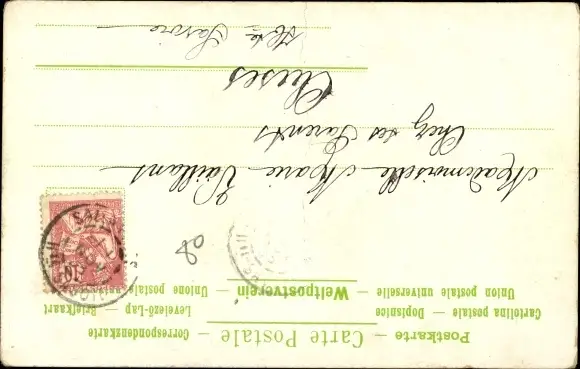 Postkarte — Carte Postale — Correspondenzkarte
Cartolina postale Dopisnice Levelező-Lap Briefkaart
Union postale universelle Weltpostverein Unione postale
80
Mademoiselle Marie Vaillant
Chez ses Parents
Cluses
Hte Savoie